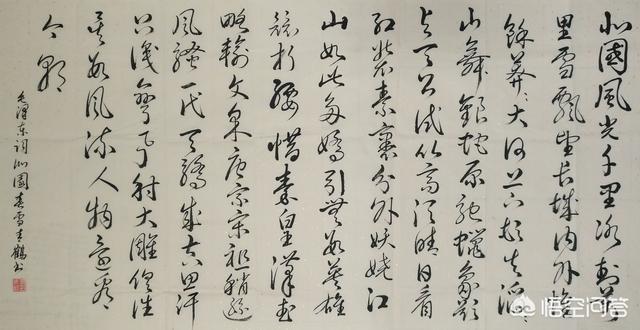 北國風光千里冰封萬
里雪飄望長城內外惟
餘莽莽大河上下頓失滔滔
山舞銀蛇原馳蠟象欲
與天公試比高須晴日看
紅裝素裹分外妖嬈江
山如此多嬌引無數英雄
競折腰惜秦皇漢武
略輸文采唐宗宋祖稍遜
風騷一代天驕成吉思汗
只識彎弓射大雕俱往
矣數風流人物還看
今朝
毛澤東詞沁園春雪 鶴書
悟空问答